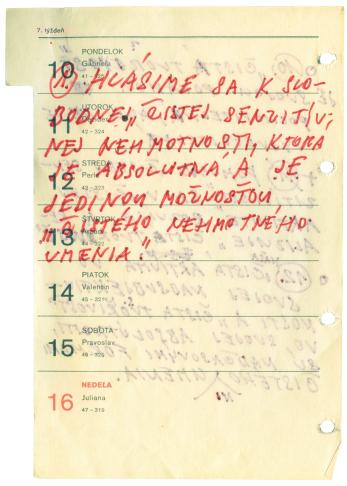 7. týždeň
PONDELOK
10
Gabriela
41 - 325
1. HLÁSIME SA K SLO-
BODNEJ „ČISTEJ SENZITÍV-
NEJ NEHMOTNOSTI, KTORÁ
JE ABSOLUTNÁ A JE
JEDINOU MOŽNOSŤOU
„ČISTÉHO NEHMOTNÉHO
UMENIA."
UTOROK
11
42 - 324
STREDA
12
43 - 323
ŠTVRTOK
13
PIATOK
14
Valentín
45 - 321
SOBOTA
15
Pravoslav
46 - 320
NEDEĽA
16
Juliana
47 - 319